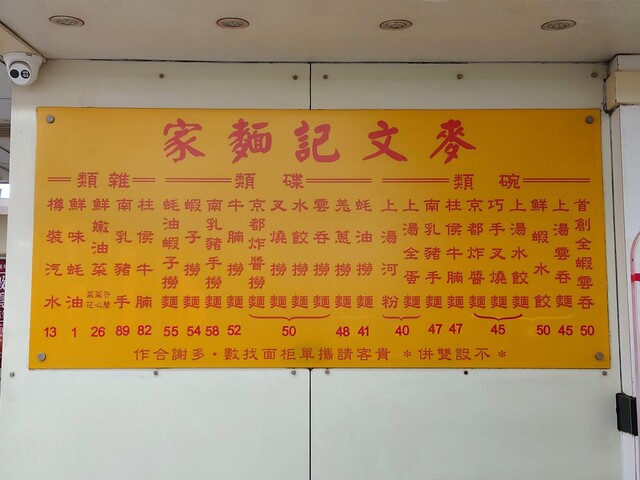 麥文記麵家
碗類
首創全蝦雲吞 50
上湯雲吞麵 45
鮮蝦水餃 50
上湯水餃麵
巧手叉燒麵
京都炸醬麵
45
柱侯牛腩麵 47
南乳豬手麵 47
上湯全蛋麵
上湯河粉
40
碟類
蚝油撈麵 41
羗蔥撈麵 48
雲吞撈麵
水餃撈麵
叉燒撈麵
京都炸醬撈麵
50
牛腩撈麵 52
南乳豬手撈麵 58
蝦子撈麵 54
蚝油蝦子撈麵 55
雜類
柱侯牛腩 82
南乳豬手 89
鮮嫩油菜 26
鮮味蚝油 1
樽裝汽水 13
＊不設雙併＊ 貴客請攜單柜面找數・多謝合作